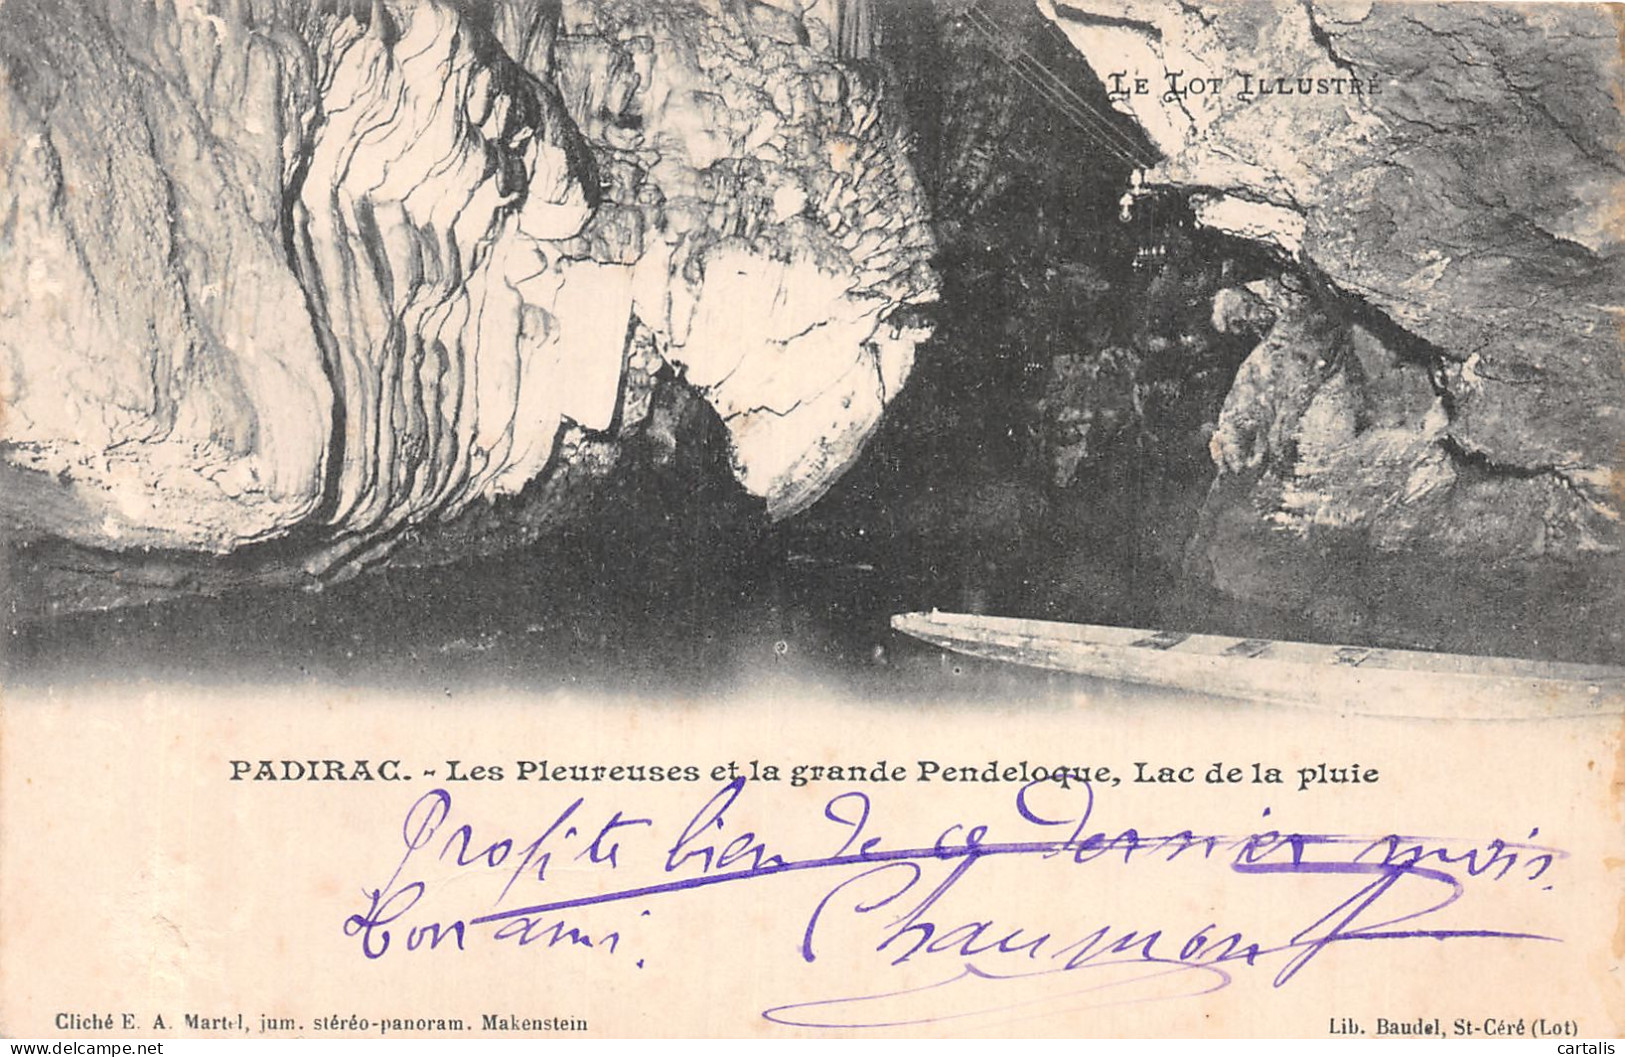 LE LOT ILLUSTRÉ
PADIRAC. - Les Pleureuses et la grande Pendeloque, Lac de la pluie
Profite bien de ce dernier mois.
Ton ami. Chaumont
Cliché E. A. Martel, jum. stéréo-panoram. Makenstein
Lib. Baudel, St-Céré (Lot)
delcampe.net
cartalis